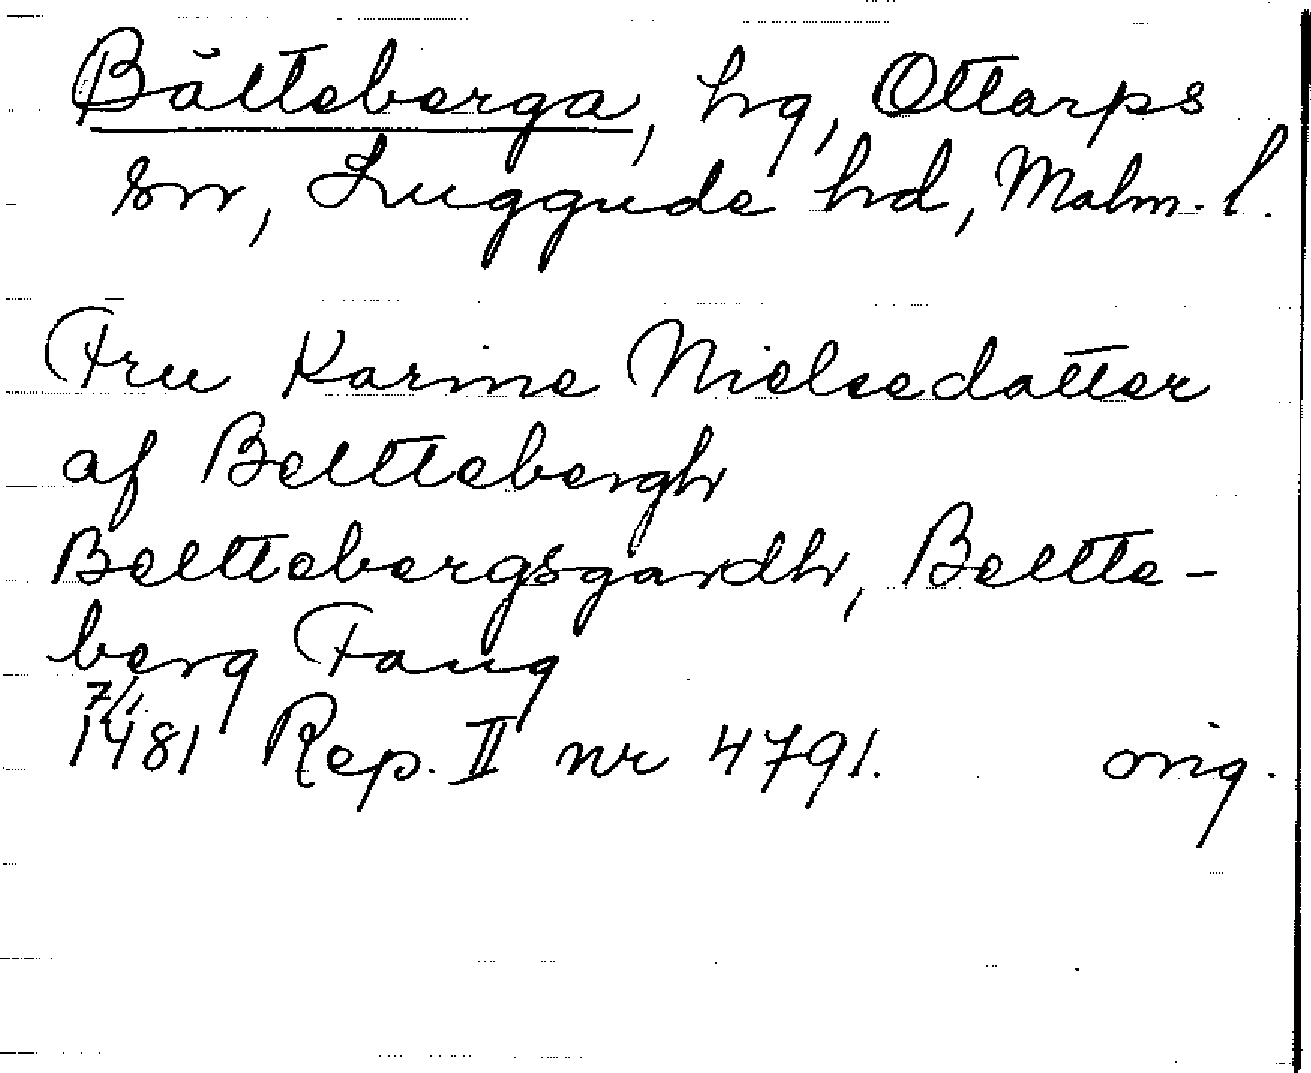 Bälteberga, hg, Ottarps
sn, Luggude hd, Malm. l.
Fru Karine Nielsedatter
af Belttebergh
Belttebergsgardh, Beltte-
berg Fang
7/1
1481 Rep. II nr 4791. orig.